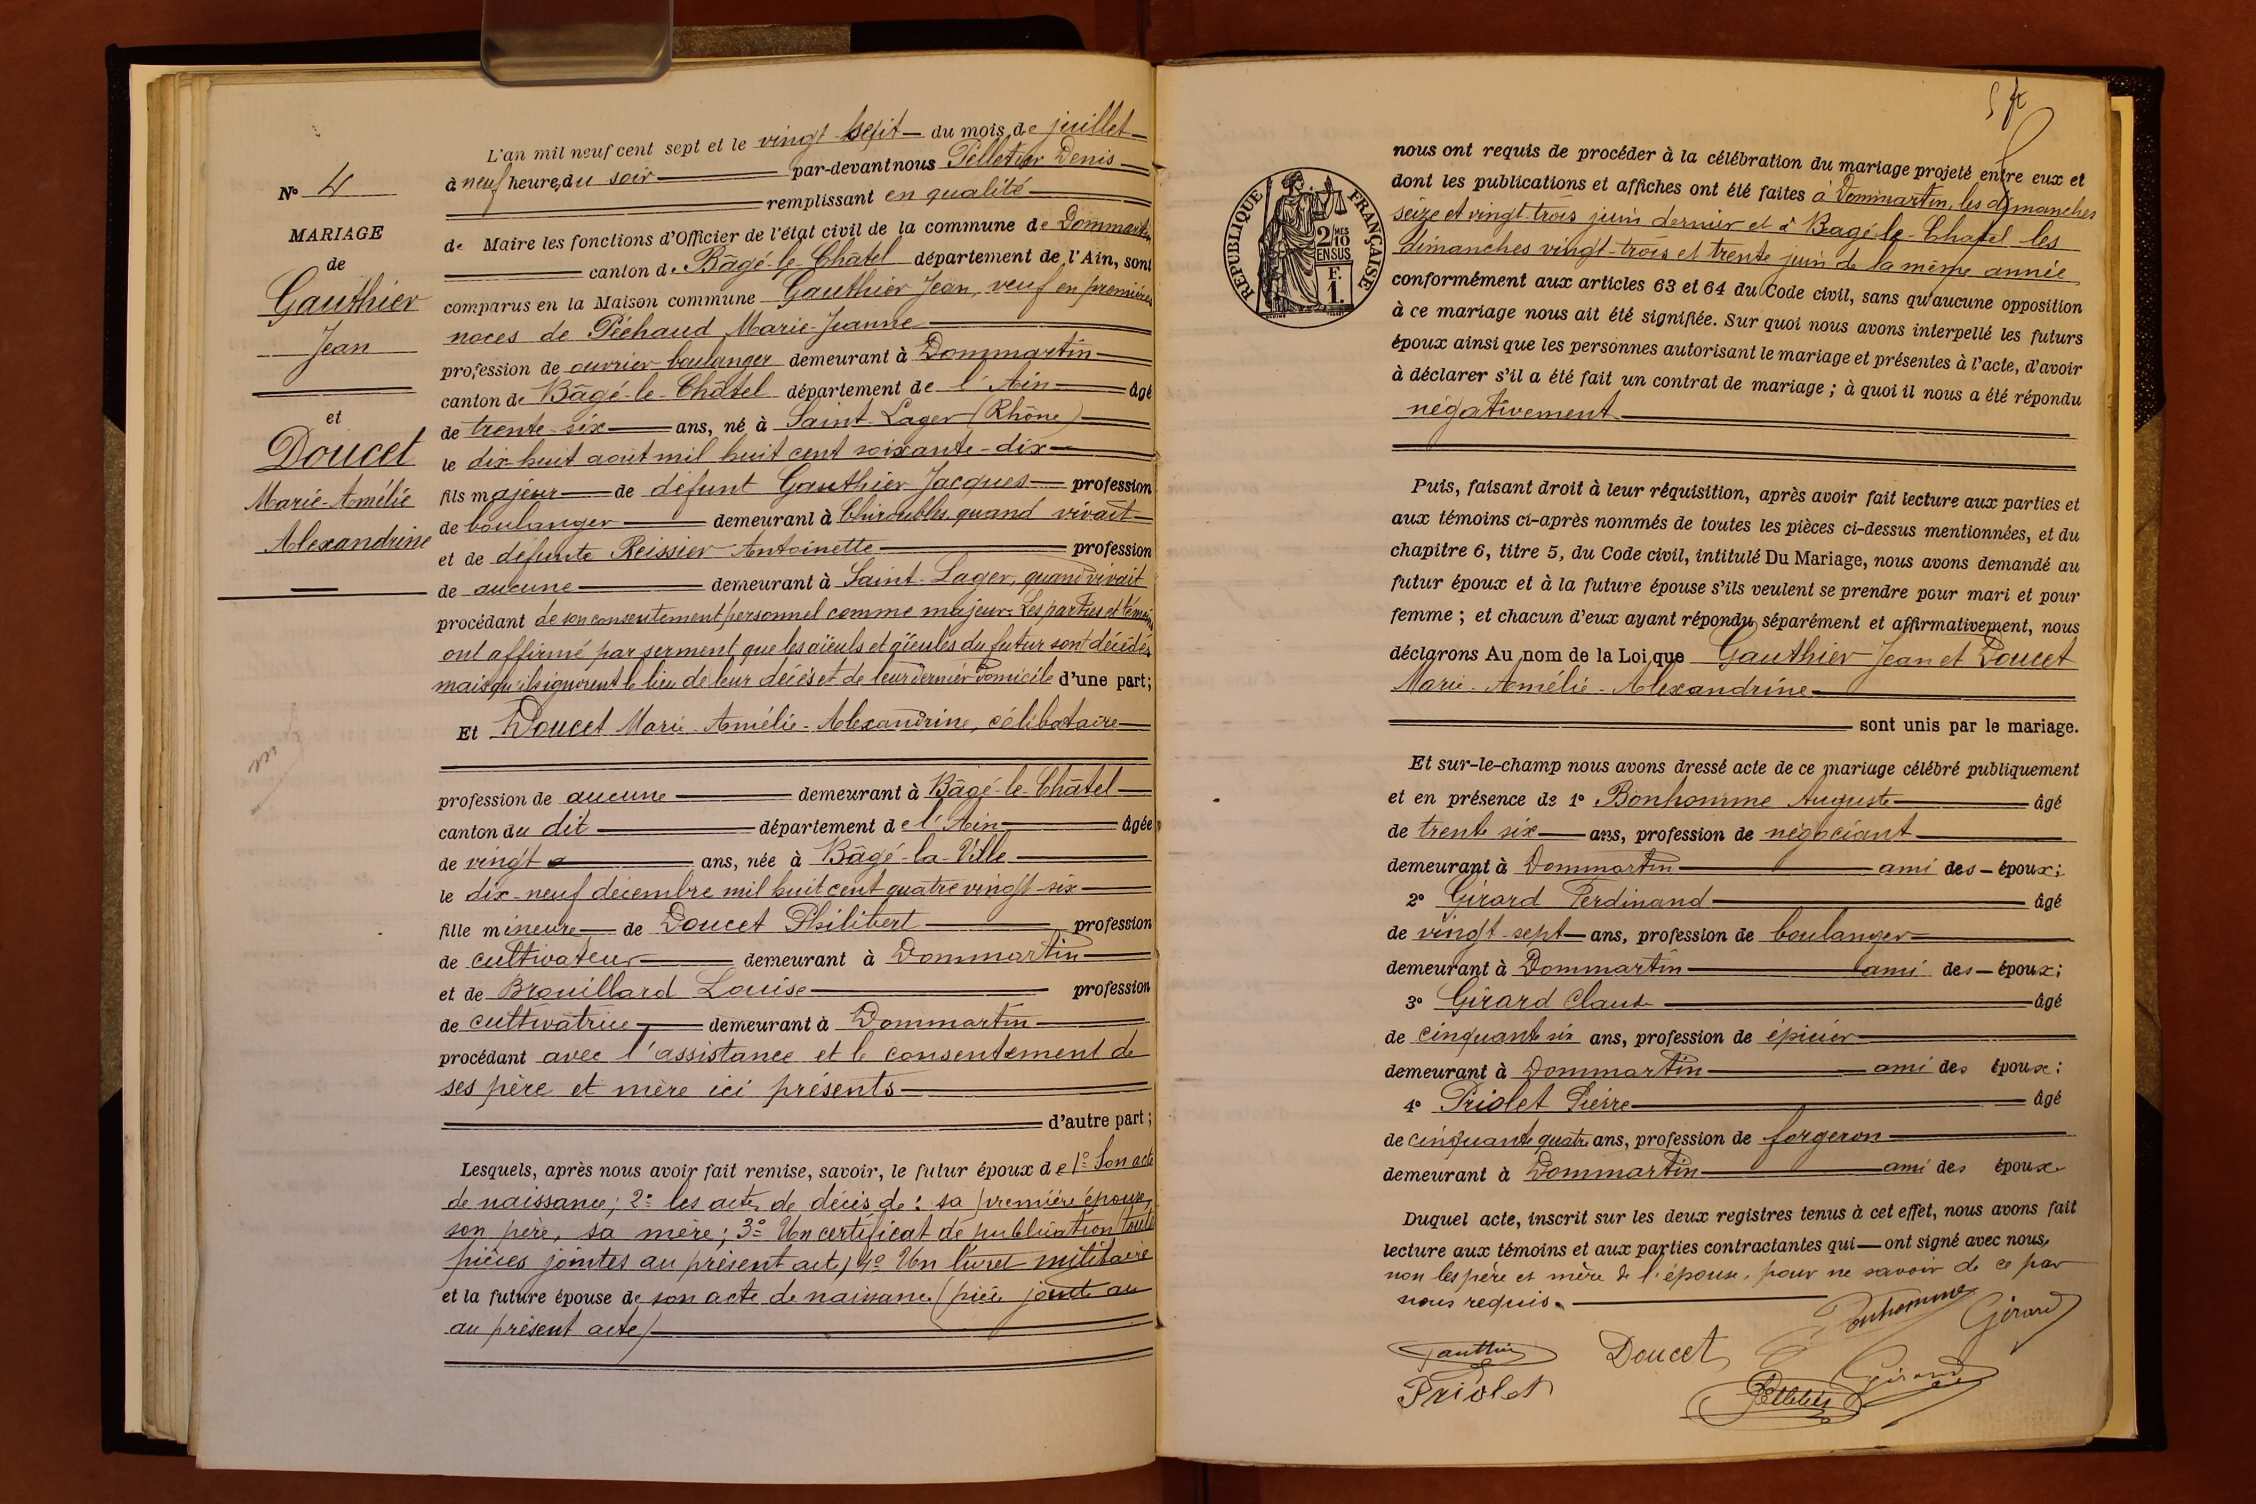 N° 4
MARIAGE
de
Gauthier
Jean
et
Doucet
Marie-Amélie
Alexandrine
L'an mil neuf cent sept et le vingt sept du mois de juillet
à neuf heures du soir par-devant nous Pelletier Denis
remplissant en qualité
de Maire les fonctions d'Officier de l'état civil de la commune de Dommartin
canton de Bâgé-le-Châtel département de l'Ain, sont
comparus en la Maison commune Gauthier Jean, veuf en premières
noces de Péchaud Marie-Jeanne
profession de ouvrier boulanger demeurant à Dommartin
canton de Bâgé-le-Châtel département de l'Ain âgé
de trente-six ans, né à Saint-Lager (Rhône)
le dix-huit août mil huit cent soixante-dix
fils majeur de défunt Gauthier Jacques profession
de boulanger demeurant à Chiroubles quand vivait
et de défunte Reissier Antoinette profession
de aucune demeurant à Saint-Lager, quand vivait
procédant de son consentement personnel comme majeur. Les parties et témoins
ont affirmé par serment que les aïeuls et aïeules du futur sont décédés
mais qu'ils ignorent le lieu de leur décès et de leur dernier domicile d'une part;
Et Doucet Marie-Amélie-Alexandrine, célibataire
profession de aucune demeurant à Bâgé-le-Châtel
canton du dit département de l'Ain âgée
de vingt ans, née à Bâgé-la-Ville
le dix-neuf décembre mil huit cent quatre vingt-six
fille mineure de Doucet Philibert profession
de cultivateur demeurant à Dommartin
et de Brouillard Louise profession
de cultivatrice demeurant à Dommartin
procédant avec l'assistance et le consentement de
ses père et mère ici présents
d'autre part;
Lesquels, après nous avoir fait remise, savoir, le futur époux de 1° Son acte
de naissance; 2° les actes de décès de : sa première épouse,
son père, sa mère; 3° Un certificat de publication (toutes
pièces jointes au présent acte) 4° Un livret militaire
et la future épouse de son acte de naissance (pièce jointe au
au présent acte)
nous ont requis de procéder à la célébration du mariage projeté entre eux et
dont les publications et affiches ont été faites à Dommartin, les dimanches
seize et vingt-trois juin dernier et à Bagé-le-Chatel les
dimanches vingt-trois et trente juin de la même année
conformément aux articles 63 et 64 du Code civil, sans qu'aucune opposition
à ce mariage nous ait été signifiée. Sur quoi nous avons interpellé les futurs
époux ainsi que les personnes autorisant le mariage et présentes à l'acte, d'avoir
à déclarer s'il a été fait un contrat de mariage ; à quoi il nous a été répondu
négativement
RÉPUBLIQUE FRANÇAISE
2/10 MES
EN SUS
F.
1.
Puis, faisant droit à leur réquisition, après avoir fait lecture aux parties et
aux témoins ci-après nommés de toutes les pièces ci-dessus mentionnées, et du
chapitre 6, titre 5, du Code civil, intitulé Du Mariage, nous avons demandé au
futur époux et à la future épouse s'ils veulent se prendre pour mari et pour
femme ; et chacun d'eux ayant répondu séparément et affirmativement, nous
déclarons Au nom de la Loi que Gauthier Jean et Doucet
Marie-Amélie-Alexandrine
sont unis par le mariage.
Et sur-le-champ nous avons dressé acte de ce mariage célébré publiquement
et en présence de 1° Bonhomme Auguste âgé
de trente six ans, profession de négociant
demeurant à Dommartin ami des époux;
2° Girard Ferdinand âgé
de vingt-sept ans, profession de boulanger
demeurant à Dommartin ami des époux;
3° Girard Claude âgé
de cinquante six ans, profession de épicier
demeurant à Dommartin ami des époux;
4° Priolet Pierre âgé
de cinquante quatre ans, profession de forgeron
demeurant à Dommartin ami des époux
Duquel acte, inscrit sur les deux registres tenus à cet effet, nous avons fait
lecture aux témoins et aux parties contractantes qui ont signé avec nous,
non les père et mère de l'épouse, pour ne savoir de ce par
nous requis.
Gauthier Doucet Bonhomme Girard
Priolet Pelletier Girard